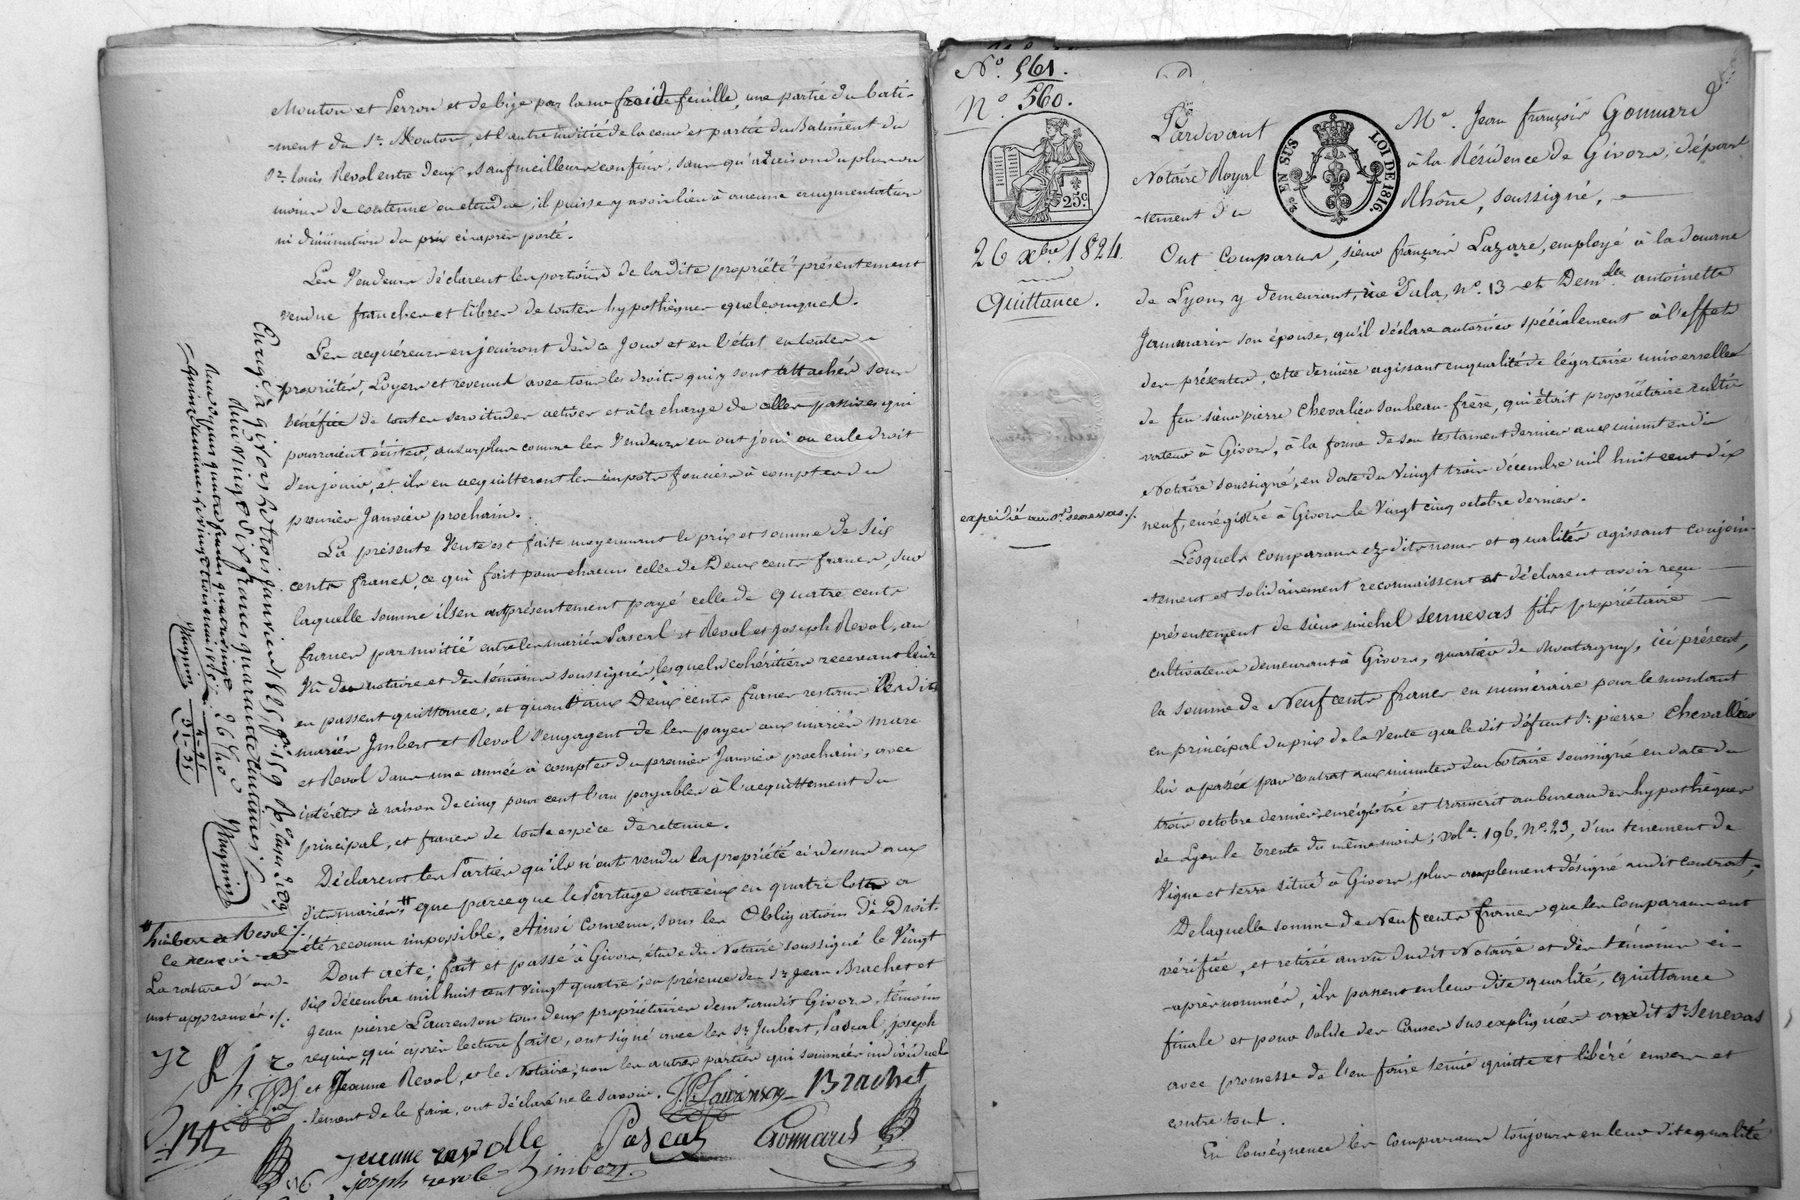 Mouton et Perron et de bize par la rue froide feuille, une partie du bati-
-ment du Sr. Mouton, et l'autre moitié de la cour et partie du Batiment du
Sr. louis Revol entre deux, sauf meilleurs confins, sans qu'à raison du plus ou
moins de contenue ou etendue, il puisse y avoir lieu à aucune augmentation
ni diminution du prix ci-après porté.
Les Vendeurs déclarent les portions de la dite propriété présentement
vendue franches et libres de toutes hypothèques quelconques.
Les acquéreurs en jouiront dès ce jour et en l'état en toutes
propriétés, Loyers et revenus avec tous les droits qui y sont attachés sous
bénéfice de toutes servitudes actives et à la charge de celles passives qui
pourraient éxister, au surplus comme les Vendeurs en ont joui ou eu le droit
d'en jouir, et ils en acquitteront les impots fonciers à compter du
premier Janvier prochain.
La présente Vente est faite moyennant le prix et somme de Six
cents francs, ce qui fait pour chacun celle de Deux cents francs, sur
laquelle somme ils en ont présentement payé celle de quatre cents
francs par moitié entre les mariés Pascal et Revol et Joseph Revol, au
Vû des notaire et des témoins soussignés, lesquels cohéritiers recevant leur
en passent quittance, et quant aux Deux cents francs restans les dits
mariés Imbert et Revol s'engagent de les payer aux mariés mare
et Revol dans une année à compter du premier Janvier prochain, avec
intérêts à raison de cinq pour cent l'an payables à l'acquittement du
principal, et francs de toute espèce de retenue.
Déclarent les Parties qu'ils n'ont vendu la propriété ci dessus aux
dits mariés # que parce que le Partage entre eux en quatre lots a
été reconnu impossible. Ainsi convenu, sous les Obligations de Droit.
Dont acte; fait et passé à Givors, étude du Notaire soussigné le Vingt
six décembre mil huit cent vingt quatre; en présence des Srs. Jean Brachet et
Jean pierre Laurenson tous deux propriétaires demt. audit Givors, témoins
requis, qui après lecture faite, ont signé avec les Srs. Imbert, Pascal, joseph
et Jeanne Revol, et le Notaire, non les autres parties qui sommées individuel-
lement de le faire, ont déclaré ne le savoir.
Brachet
Jeanne revolle Pascal Gonnard
joseph revole imbert
# Imbert et Revol
La rature d'un
mot approuvée
Enreg.é à givors le trois janvier 1825, f.° 159
N.° 561.
N.° 560.
25 c
26 xbre 1824.
Quittance.
expédié au sr. senevas
EN SUS
LOI DE 1816.
Pardevant Me. Jean françois Gonnard
Notaire Royal à la Résidence de Givors, départ-
-tement du Rhône, soussigné,
Ont comparus, sieur françois Lazare, employé à la douane
de Lyon, y demeurant, rüe Sala, No. 13 et Demlle. antoinette
Jammarin son épouse, qu'il déclare autoriser spécialement à l'effet
des présentes, cette dernière agissant en qualité de légataire universelle
de feu sieur pierre Chevalier son beau-frère, qui était propriétaire culti-
vateur à Givors, à la forme de son testament dernier aux minutes du
Notaire soussigné, en date du Vingt trois décembre mil huit cent dix
neuf, enrégistré à Givors le Vingt cinq octobre dernier.
Lesquels comparans ez dits noms et qualités agissant conjoin-
-tement et solidairement reconnaissent et déclarent avoir reçu
présentement de sieur michel sennevas fils propriétaire
cultivateur demeurant à Givors, quartier de Montrogny, ici présent,
la somme de Neuf cents francs en numéraire pour le montant
en principal du prix de la Vente que le dit défunt Sr. pierre Chevallier
lui a passée par contrat aux minutes du Notaire soussigné en date du
trois octobre dernier enrégistré et transcrit au bureau des hypothèques
de Lyon le trente du même mois, vole. 196. No. 23, d'un tenement de
Vigne et terre situé à Givors, plus amplement désigné audit contrat;
De laquelle somme de Neuf cents francs que les comparans ont
vérifiée, et retirée au vu dudit Notaire et des témoins ci-
-après nommés, ils passent en leur dite qualité, quittance
finale et pour solde des causes sus expliquées audit Sr. Senevas
avec promesse de l'en faire tenir quitte et libéré envers et
contre tous.
En conséquence les Comparans toujours en leur dite qualité